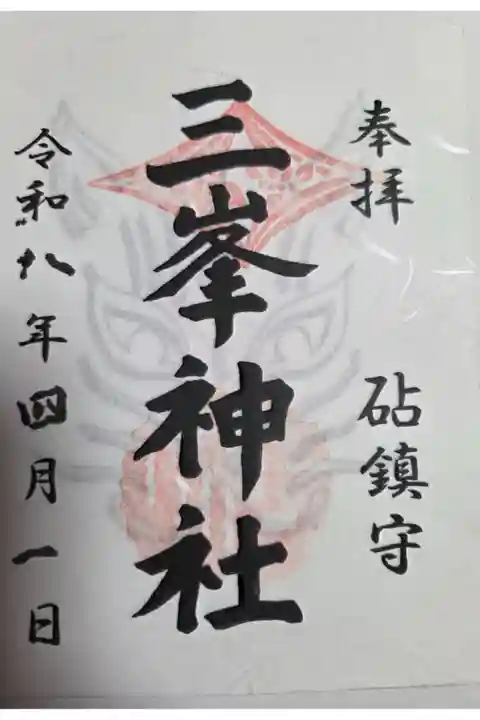 奉拝 砧鎮守
三峯神社
令和八年四月一日